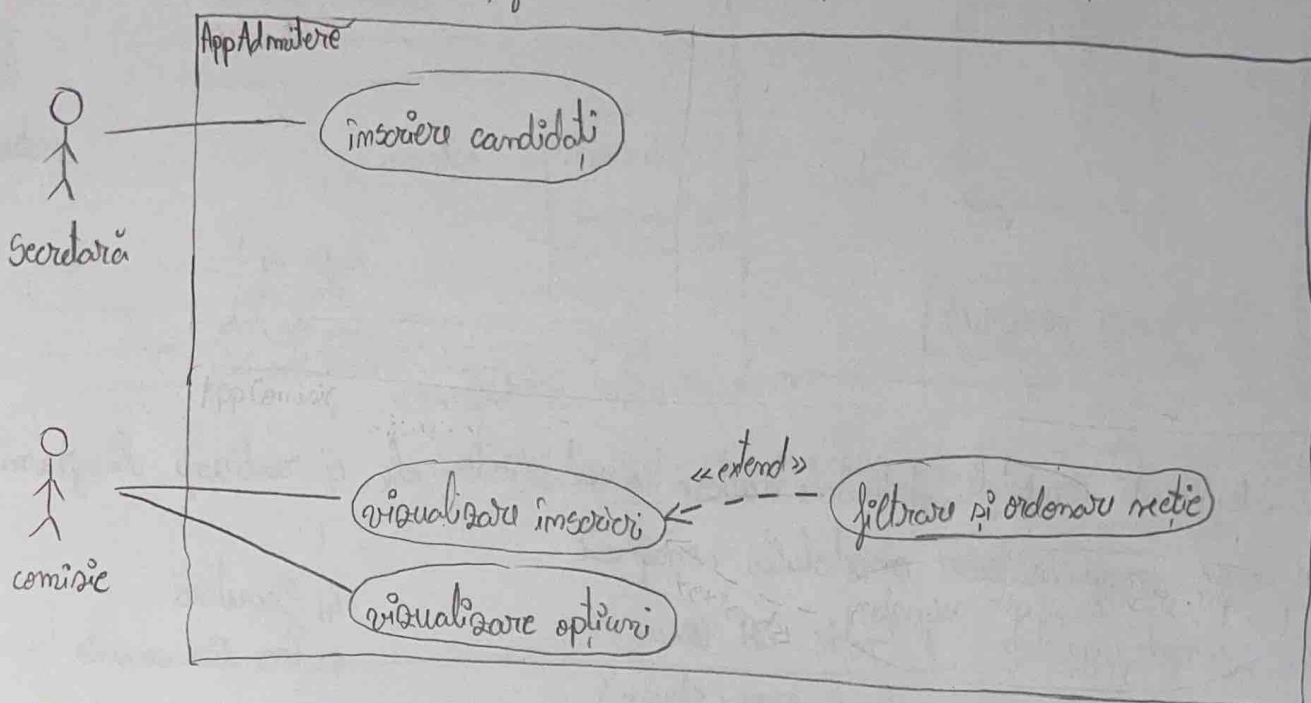 AppAdmitere
înscriere candidați
Secretară
«extend»
vizualizare înscrieri
filtrare și ordonare
comisie
vizualizare opțiuni